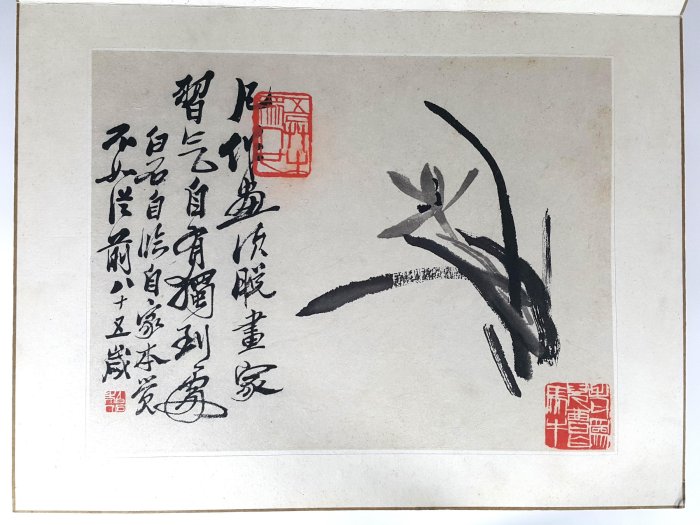 凡作畫須脫畫家
習气自有獨到處
白石自臨自家本觉
不如從前八十五歲